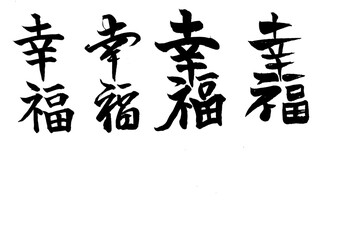 幸福
幸福
幸福
幸福